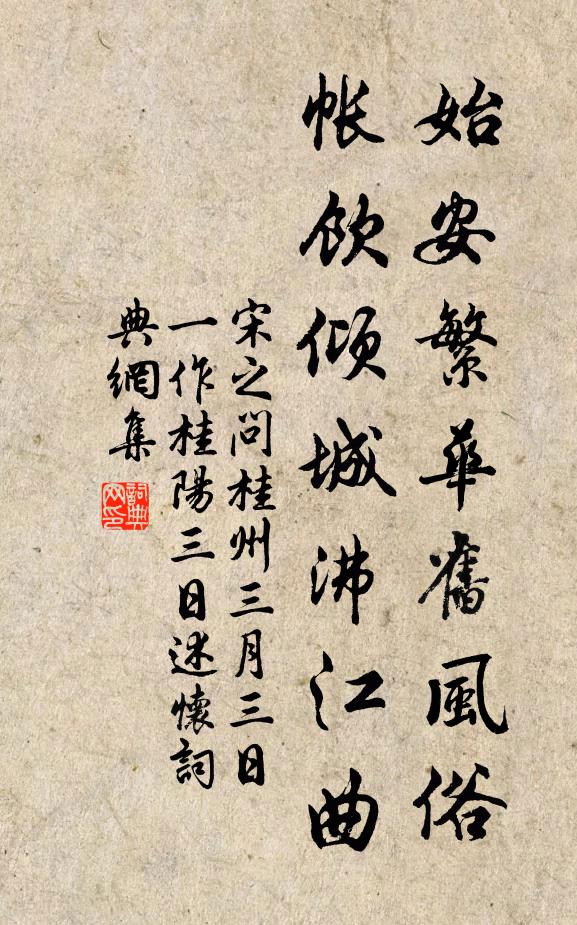 始安繁華舊風俗
帳飲傾城沸江曲
宋之問桂州三月三日
一作桂陽三日述懷詞
典網集
詞典
网印